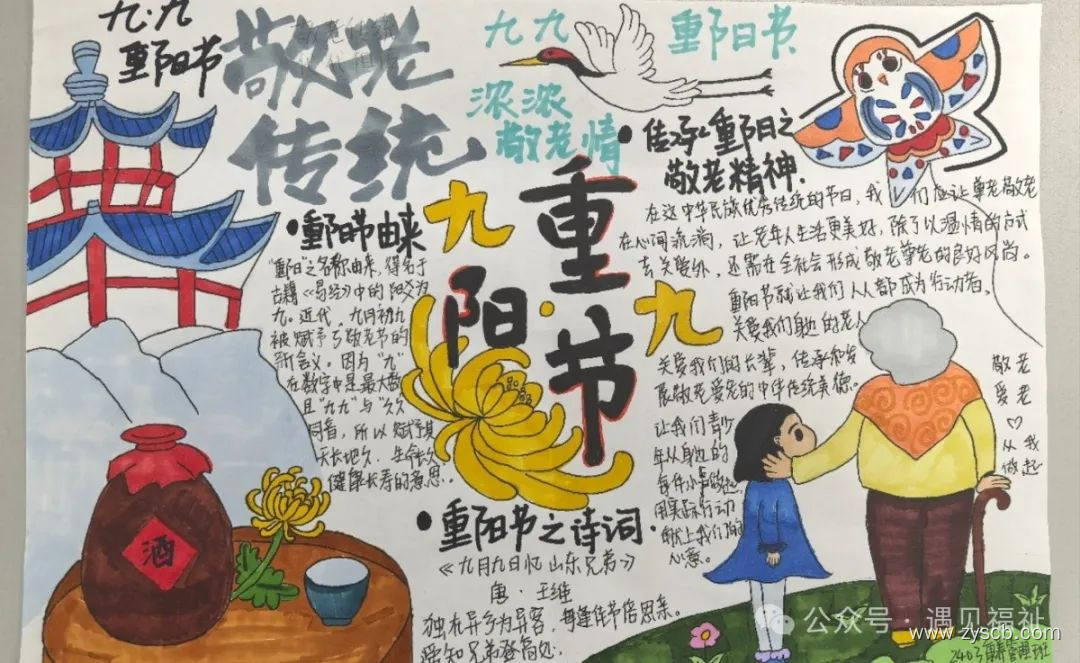 九·九
重阳节
敬老
传统
九九
重阳节
浓浓
敬老情
九
重
阳
·
节
九
•重阳节由来
"重阳"之名称由来,得名于
古籍《易经》中的阳爻为
九。近代,九月初九
被赋予了敬老节的
新含义。因为"九"
在数字中是最大数
且"九九"与"久久"
同音,所以赋予其
天长地久、生命长久
健康长寿的意思。
•传承重阳日之
敬老精神.
在这中华民族优秀传统的节日,我们应让尊老敬老
在心间流淌,让老年人生活更美好,除了以温情的方式
去关爱外,还需在全社会形成敬老尊老的良好风尚。
重阳节就让我们人人都成为行动者,
关爱我们身边的老人
关爱我们的长辈,传承和发
展敬老爱老的中华传统美德。
让我们青少
年从身边的
每件小事做起
用实际行动
献上我们的
心意。
敬老
爱老
从我
做起
•重阳节之诗词·
《九月九日忆山东兄弟》
唐·王维
独在异乡为异客,每逢佳节倍思亲。
遥知兄弟登高处,
酒
公众号·遇见福祉
www.zyscb.com